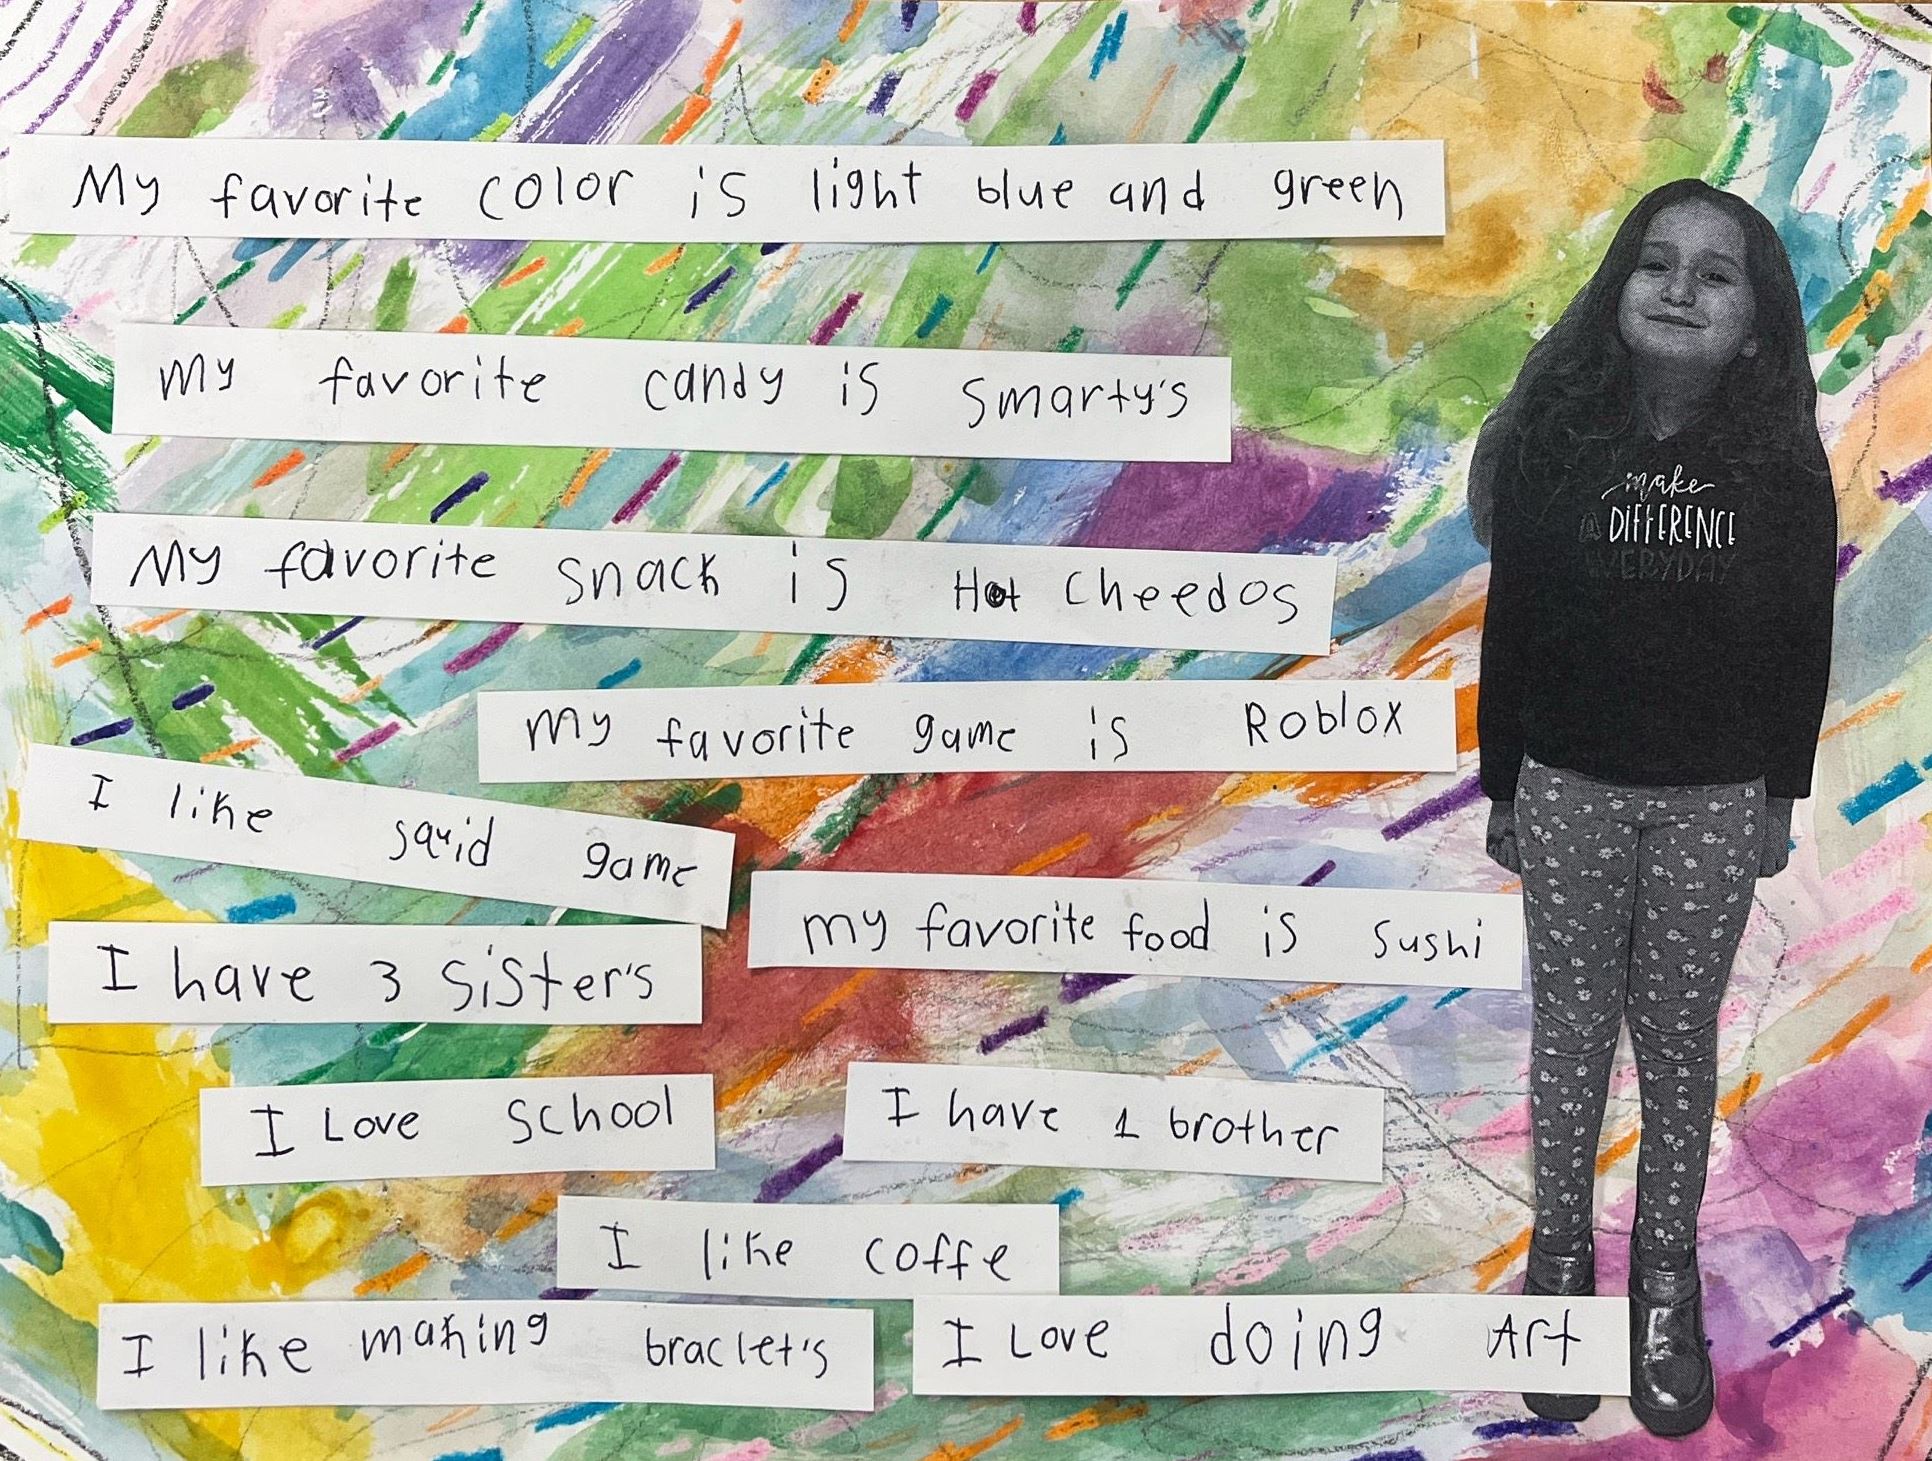 My favorite color is light blue and green
my favorite candy is smarty's
My favorite snack is Hot Cheedos
my favorite game is Roblox
I like squid game
my favorite food is sushi
I have 3 sister's
I Love school
I have 1 brother
I like coffe
I like making braclet's
I Love doing Art
make
A DIFFERENCE
EVERYDAY